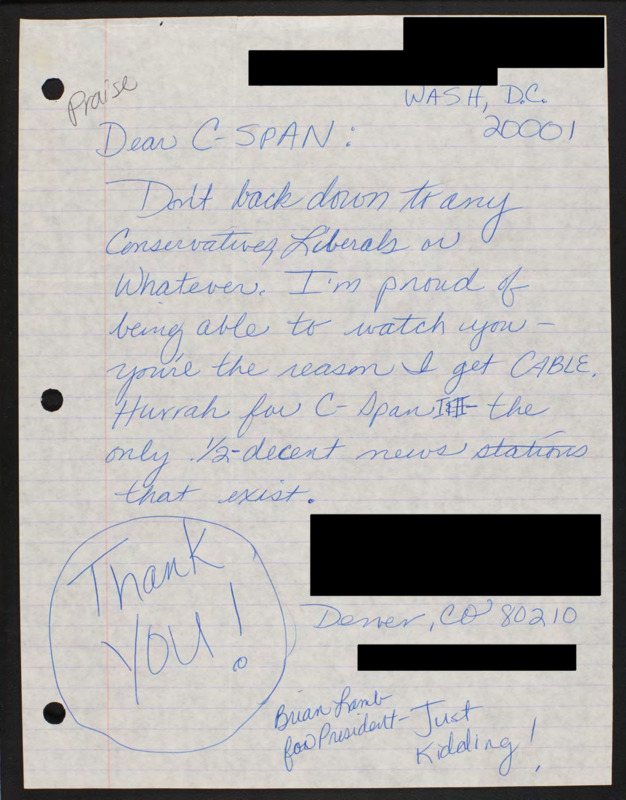 Praise
WASH, D.C.
20001
Dear C-SPAN:
Don't back down to any
Conservatives, Liberals or
Whatever. I'm proud of
being able to watch you –
you're the reason I get CABLE.
Hurrah for C-Span – the
only 1/2-decent news stations
that exist.
Thank
YOU!
Denver, CO 80210
Brian Lamb
for President – Just
Kidding!